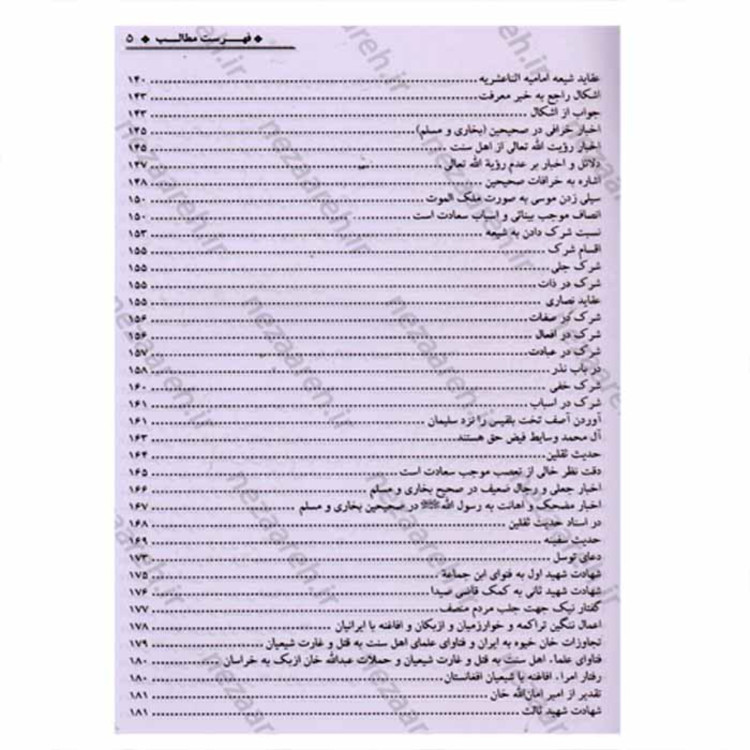 ◆ فهـــرست مطالـــب ◆ ۵
عقاید شیعه امامیه اثناعشریه ... ۱۴۰
اشکال راجع به خبر معرفت ... ۱۴۳
جواب از اشکال ... ۱۴۳
اخبار خرافی در صحیحین (بخاری و مسلم) ... ۱۴۵
اخبار رؤیت الله تعالی از اهل سنت ... ۱۴۵
دلائل و اخبار بر عدم رؤیة الله تعالی ... ۱۴۷
اشاره به خرافات صحیحین ... ۱۴۸
سیلی زدن موسی به صورت ملک الموت ... ۱۵۰
انصاف موجب بینائی و اسباب سعادت است ... ۱۵۰
نسبت شرک دادن به شیعه ... ۱۵۳
اقسام شرک ... ۱۵۵
شرک جلی ... ۱۵۵
شرک در ذات ... ۱۵۵
عقاید نصاری ... ۱۵۵
شرک در صفات ... ۱۵۶
شرک در افعال ... ۱۵۶
شرک در عبادت ... ۱۵۷
در باب نذر ... ۱۵۸
شرک خفی ... ۱۶۰
شرک در اسباب ... ۱۶۱
آوردن آصف تخت بلقیس را نزد سلیمان ... ۱۶۱
آل محمد وسایط فیض حق هستند ... ۱۶۳
حدیث ثقلین ... ۱۶۴
دقت نظر خالی از تعصب موجب سعادت است ... ۱۶۵
اخبار جعلی و رجال ضعیف در صحیح بخاری و مسلم ... ۱۶۶
اخبار مضحک و اهانت به رسول اللهﷺ در صحیحین بخاری و مسلم ... ۱۶۷
در اسناد حدیث ثقلین ... ۱۶۸
حدیث سفینه ... ۱۶۹
دعای توسل ... ۱۷۳
شهادت شهید اول به فتوای ابن جماعة ... ۱۷۵
شهادت شهید ثانی به کمک قاضی صیدا ... ۱۷۶
گفتار نیک جهت جلب مردم منصف ... ۱۷۷
اعمال ننگین تراکمه و خوارزمیان و ازبکان و افاغنه با ایرانیان ... ۱۷۸
تجاوزات خان خیوه به ایران و فتاوای علمای اهل سنت به قتل و غارت شیعیان ... ۱۷۹
فتاوای علماء اهل سنت به قتل و غارت شیعیان و حملات عبدالله خان ازبک به خراسان ... ۱۸۰
رفتار امراء افاغنه با شیعیان افغانستان ... ۱۸۰
تقدیر از امیر امان‌الله خان ... ۱۸۱
شهادت شهید ثالث ... ۱۸۱
nezaareh.ir